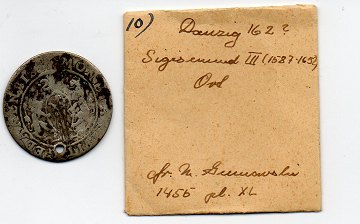 10)
Danzig 162?
Sigismund III (1587-1632)
Ort
fr. M. Gumowski
1455 pl. XL